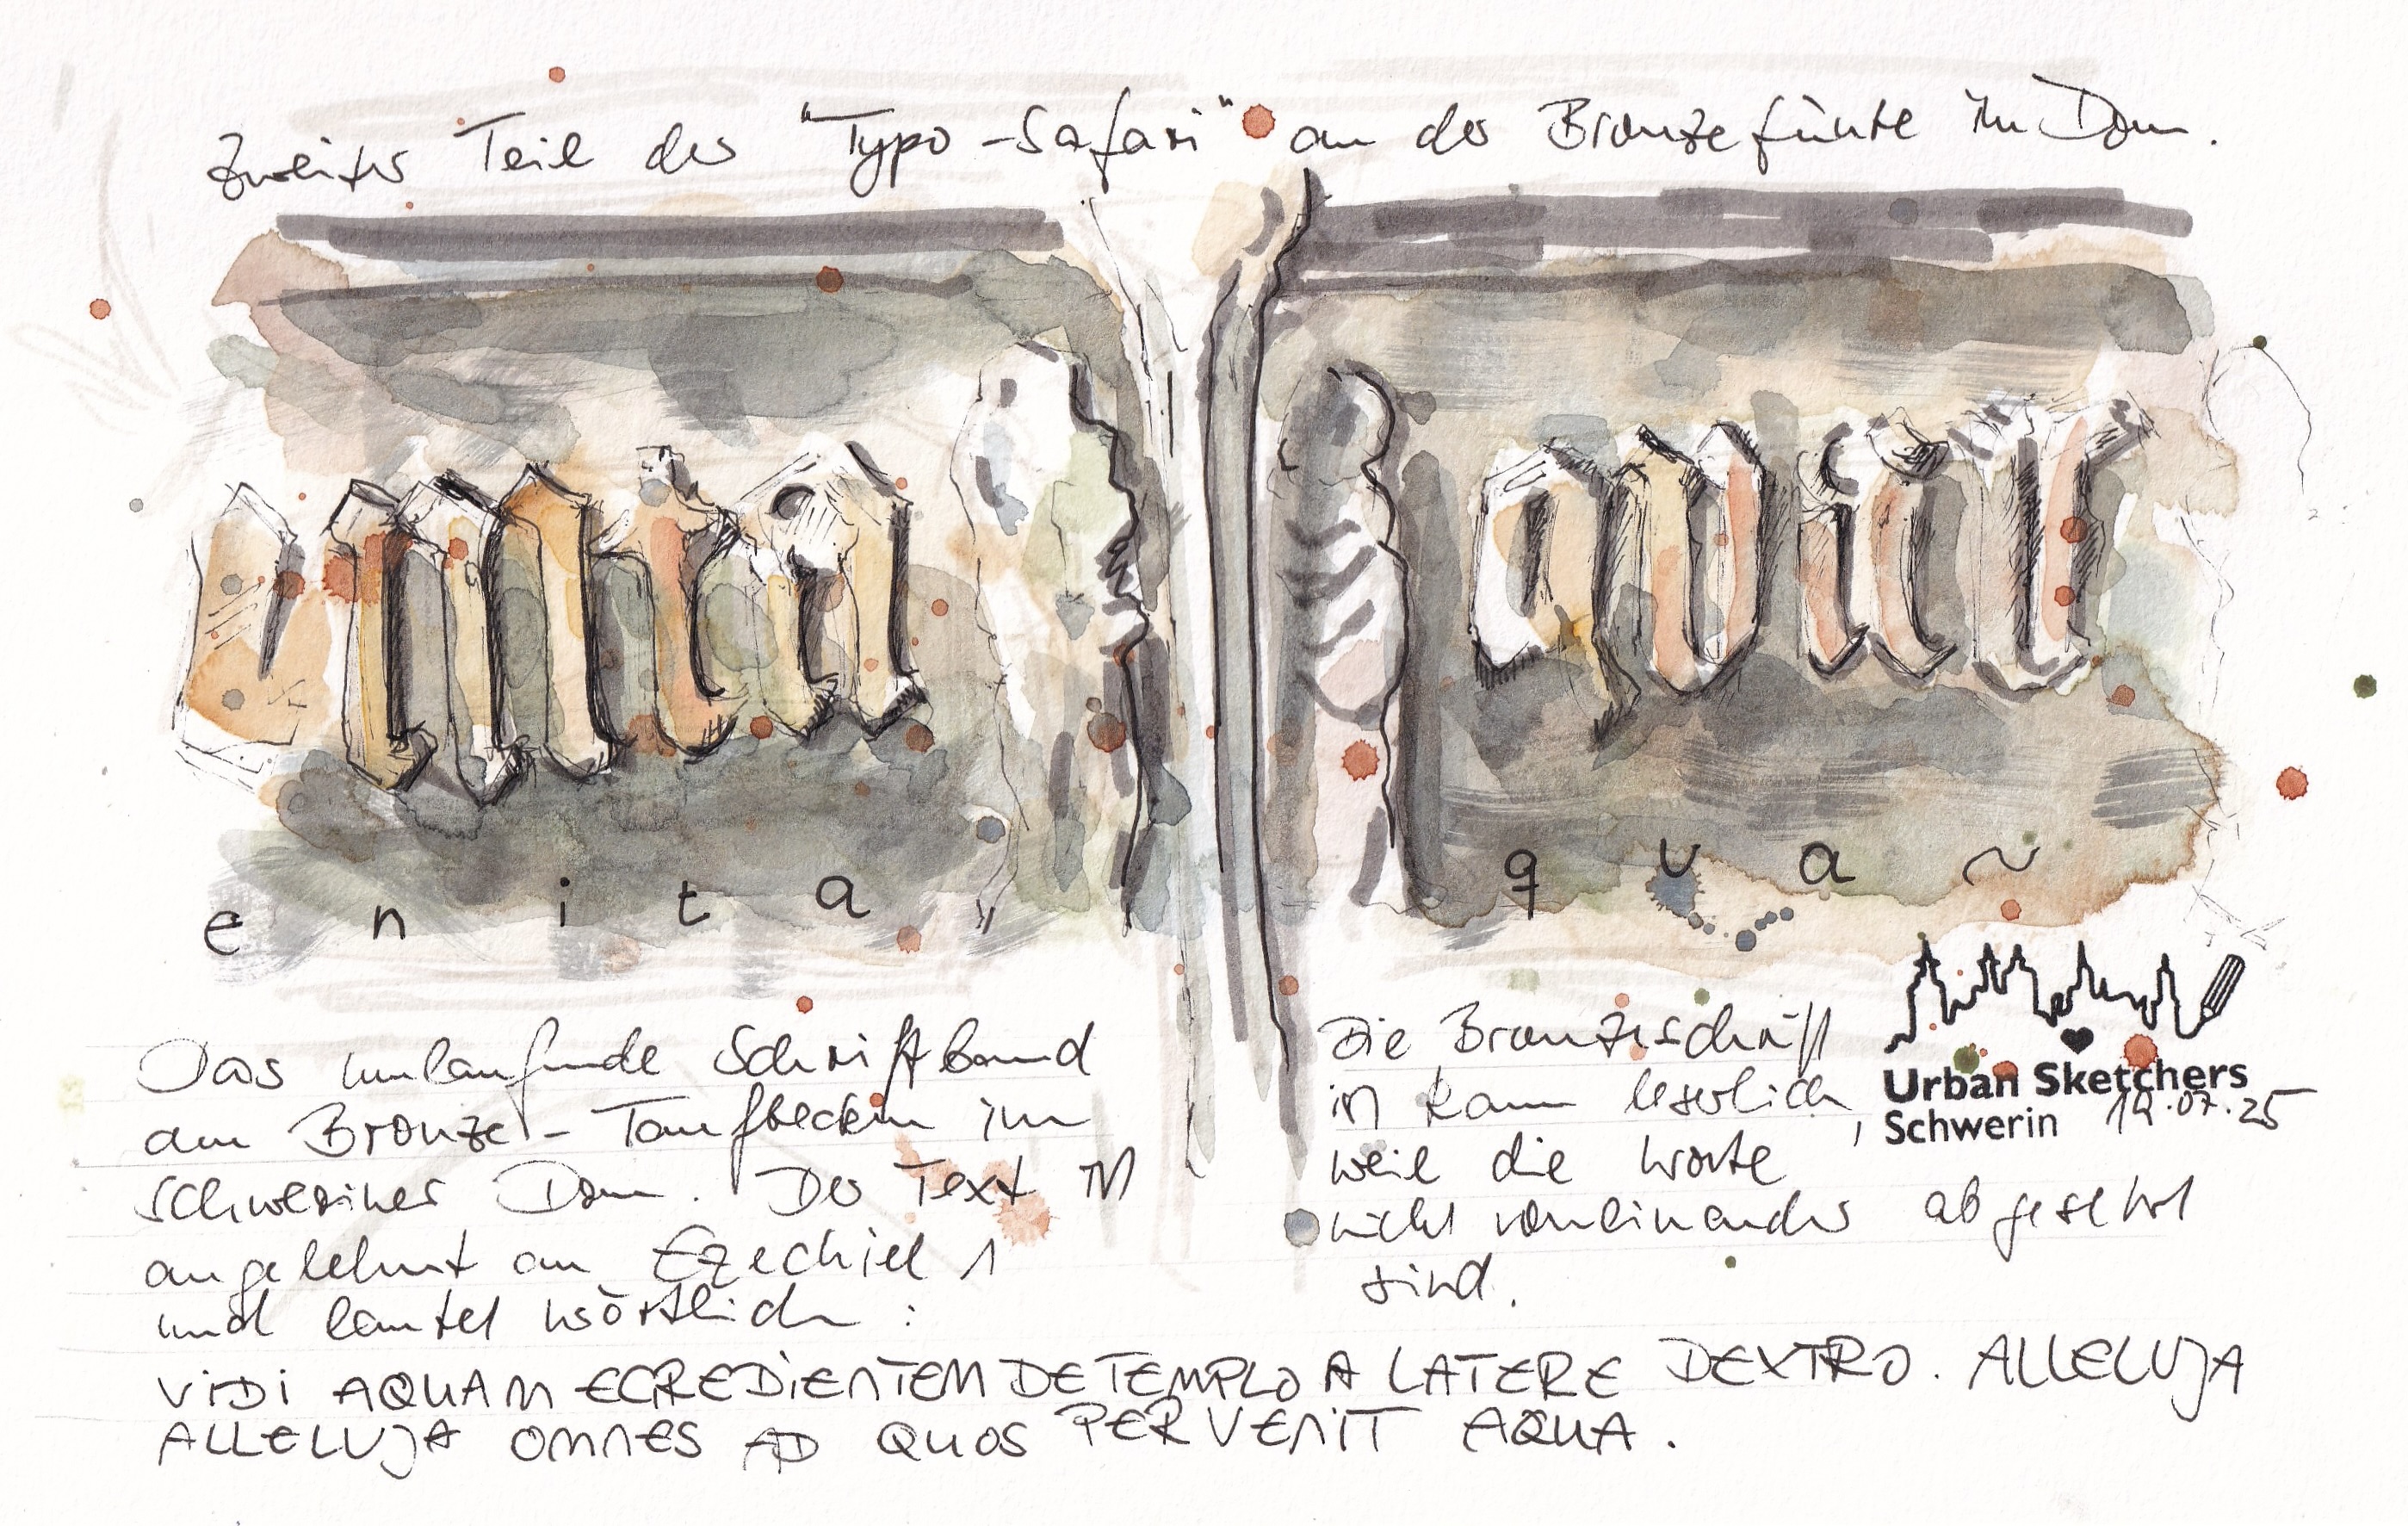 Zweiter Teil der "Typo-Safari" an der Bronzefünte im Dom.
enita qua~
e n i t a
q u a ~
Das umlaufende Schriftband
am Bronze-Taufbecken im
Schweriner Dom. Der Text ist
angelehnt an Ezechiel 1
und lautet wörtlich:
Die Bronzeschrift
ist kaum leserlich,
weil die Worte
nicht voneinander abgesetzt
sind.
Urban Sketchers
Schwerin
19.07.25
ViDi AQUAM EGREDiENTEM DE TEMPLO A LATERE DEXTRO. ALLELUJA
ALLELUJA OMNES AD QUOS PERVENIT AQUA.